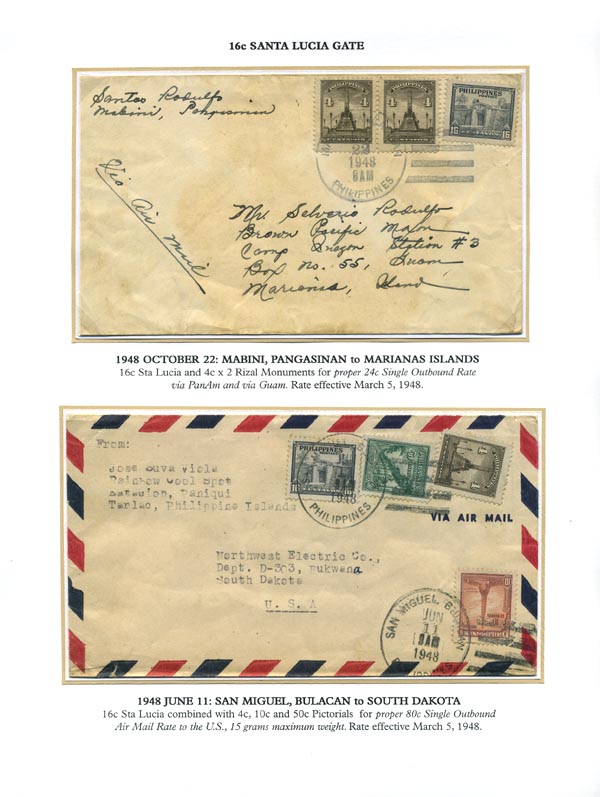 16c SANTA LUCIA GATE
Santos Rodulfo
Mabini, Pangasinan
Via Air Mail
4
4
PHILIPPINES
16 16
22
1948
8AM
PHILIPPINES
Mr. Selverio Rodulfo
Brown Pacific Maxon
Camp Station #3
Box No. 55, Guam
Marianas, Island
1948 OCTOBER 22: MABINI, PANGASINAN to MARIANAS ISLANDS
16c Sta Lucia and 4c x 2 Rizal Monuments for proper 24c Single Outbound Rate
via PanAm and via Guam. Rate effective March 5, 1948.
From:
Jose Buva Viola
Rainbow Cool Spot
Estacion, Paniqui
Tarlac, Philippine Islands
1948
PHILIPPINES
VIA AIR MAIL
Northwest Electric Co.,
Dept. D-303, Pukwana
South Dakota
U. S. A
SAN MIGUEL, BULACAN
JUN
11
8AM
1948
1948 JUNE 11: SAN MIGUEL, BULACAN to SOUTH DAKOTA
16c Sta Lucia combined with 4c, 10c and 50c Pictorials for proper 80c Single Outbound
Air Mail Rate to the U.S., 15 grams maximum weight. Rate effective March 5, 1948.